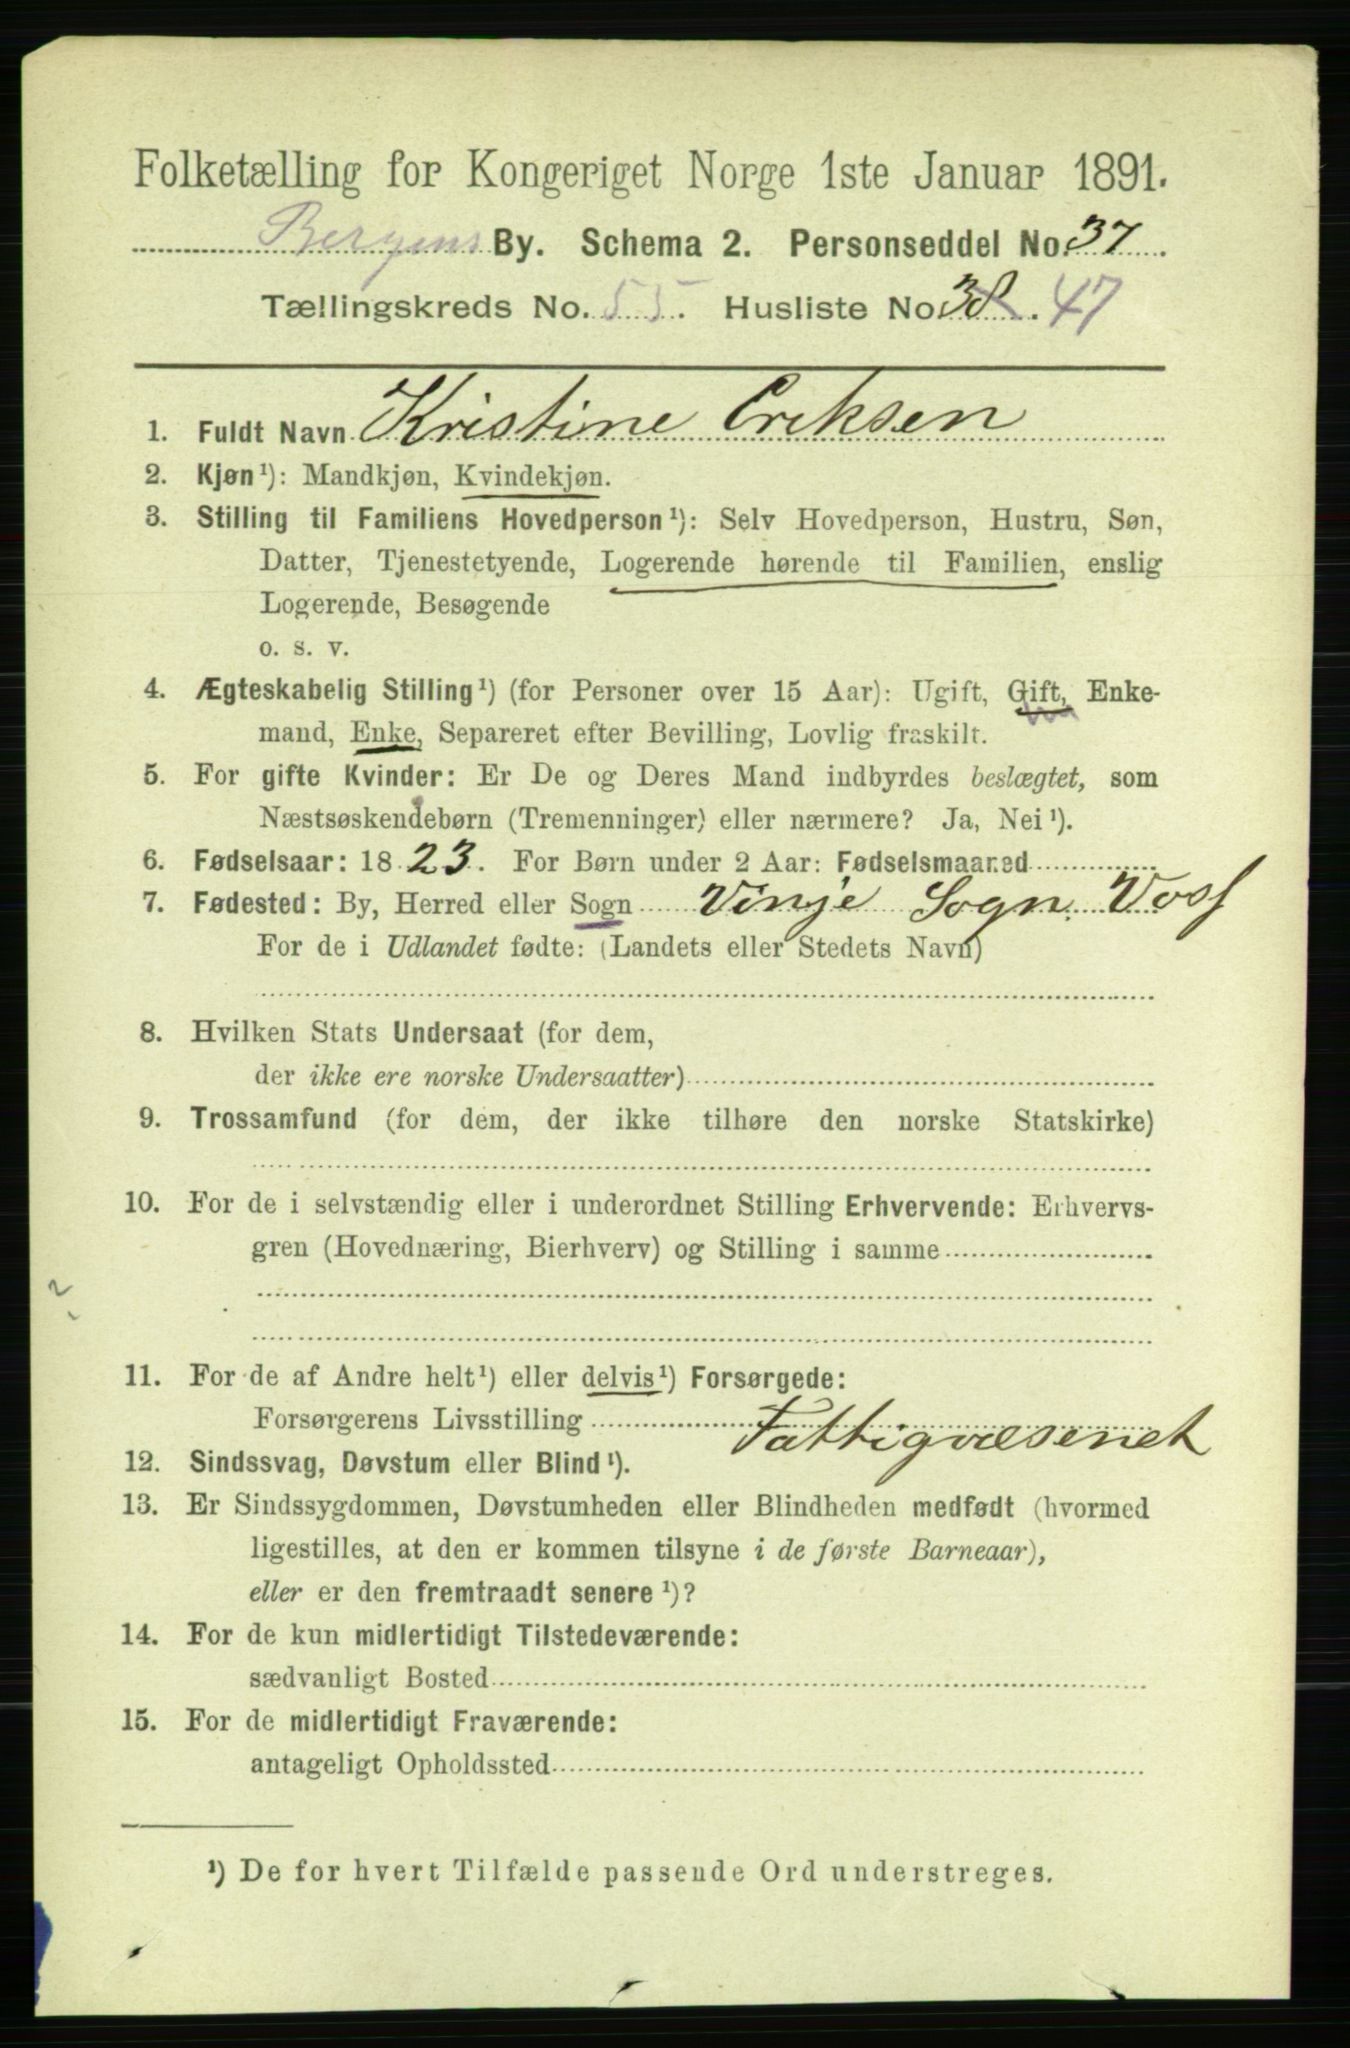 Folketælling for Kongeriget Norge 1ste Januar 1891.
Bergens By. Schema 2. Personseddel No. 37.
Tællingskreds No. 55. Husliste No. 38. 47
1. Fuldt Navn Kristine Eriksen
2. Kjøn¹): Mandkjøn, Kvindekjøn.
3. Stilling til Familiens Hovedperson¹): Selv Hovedperson, Hustru, Søn,
Datter, Tjenestetyende, Logerende hørende til Familien, enslig
Logerende, Besøgende
o. s. v.
4. Ægteskabelig Stilling¹) (for Personer over 15 Aar): Ugift, Gift, Enke-
mand, Enke, Separeret efter Bevilling, Lovlig fraskilt.
5. For gifte Kvinder: Er De og Deres Mand indbyrdes beslægtet, som
Næstsøskendebørn (Tremenninger) eller nærmere? Ja, Nei¹).
6. Fødselsaar: 1823. For Børn under 2 Aar: Fødselsmaaned
7. Fødested: By, Herred eller Sogn Vinje Sogn. Voss
For de i Udlandet fødte: (Landets eller Stedets Navn)
8. Hvilken Stats Undersaat (for dem,
der ikke ere norske Undersaatter)
9. Trossamfund (for dem, der ikke tilhøre den norske Statskirke)
10. For de i selvstændig eller i underordnet Stilling Erhvervende: Erhvervs-
gren (Hovednæring, Bierhverv) og Stilling i samme
11. For de af Andre helt¹) eller delvis¹) Forsørgede:
Forsørgerens Livsstilling Fattigvæsenet
12. Sindssvag, Døvstum eller Blind¹).
13. Er Sindssygdommen, Døvstumheden eller Blindheden medfødt (hvormed
ligestilles, at den er kommen tilsyne i de første Barneaar),
eller er den fremtraadt senere¹)?
14. For de kun midlertidigt Tilstedeværende:
sædvanligt Bosted
15. For de midlertidigt Fraværende:
antageligt Opholdssted
¹) De for hvert Tilfælde passende Ord understreges.